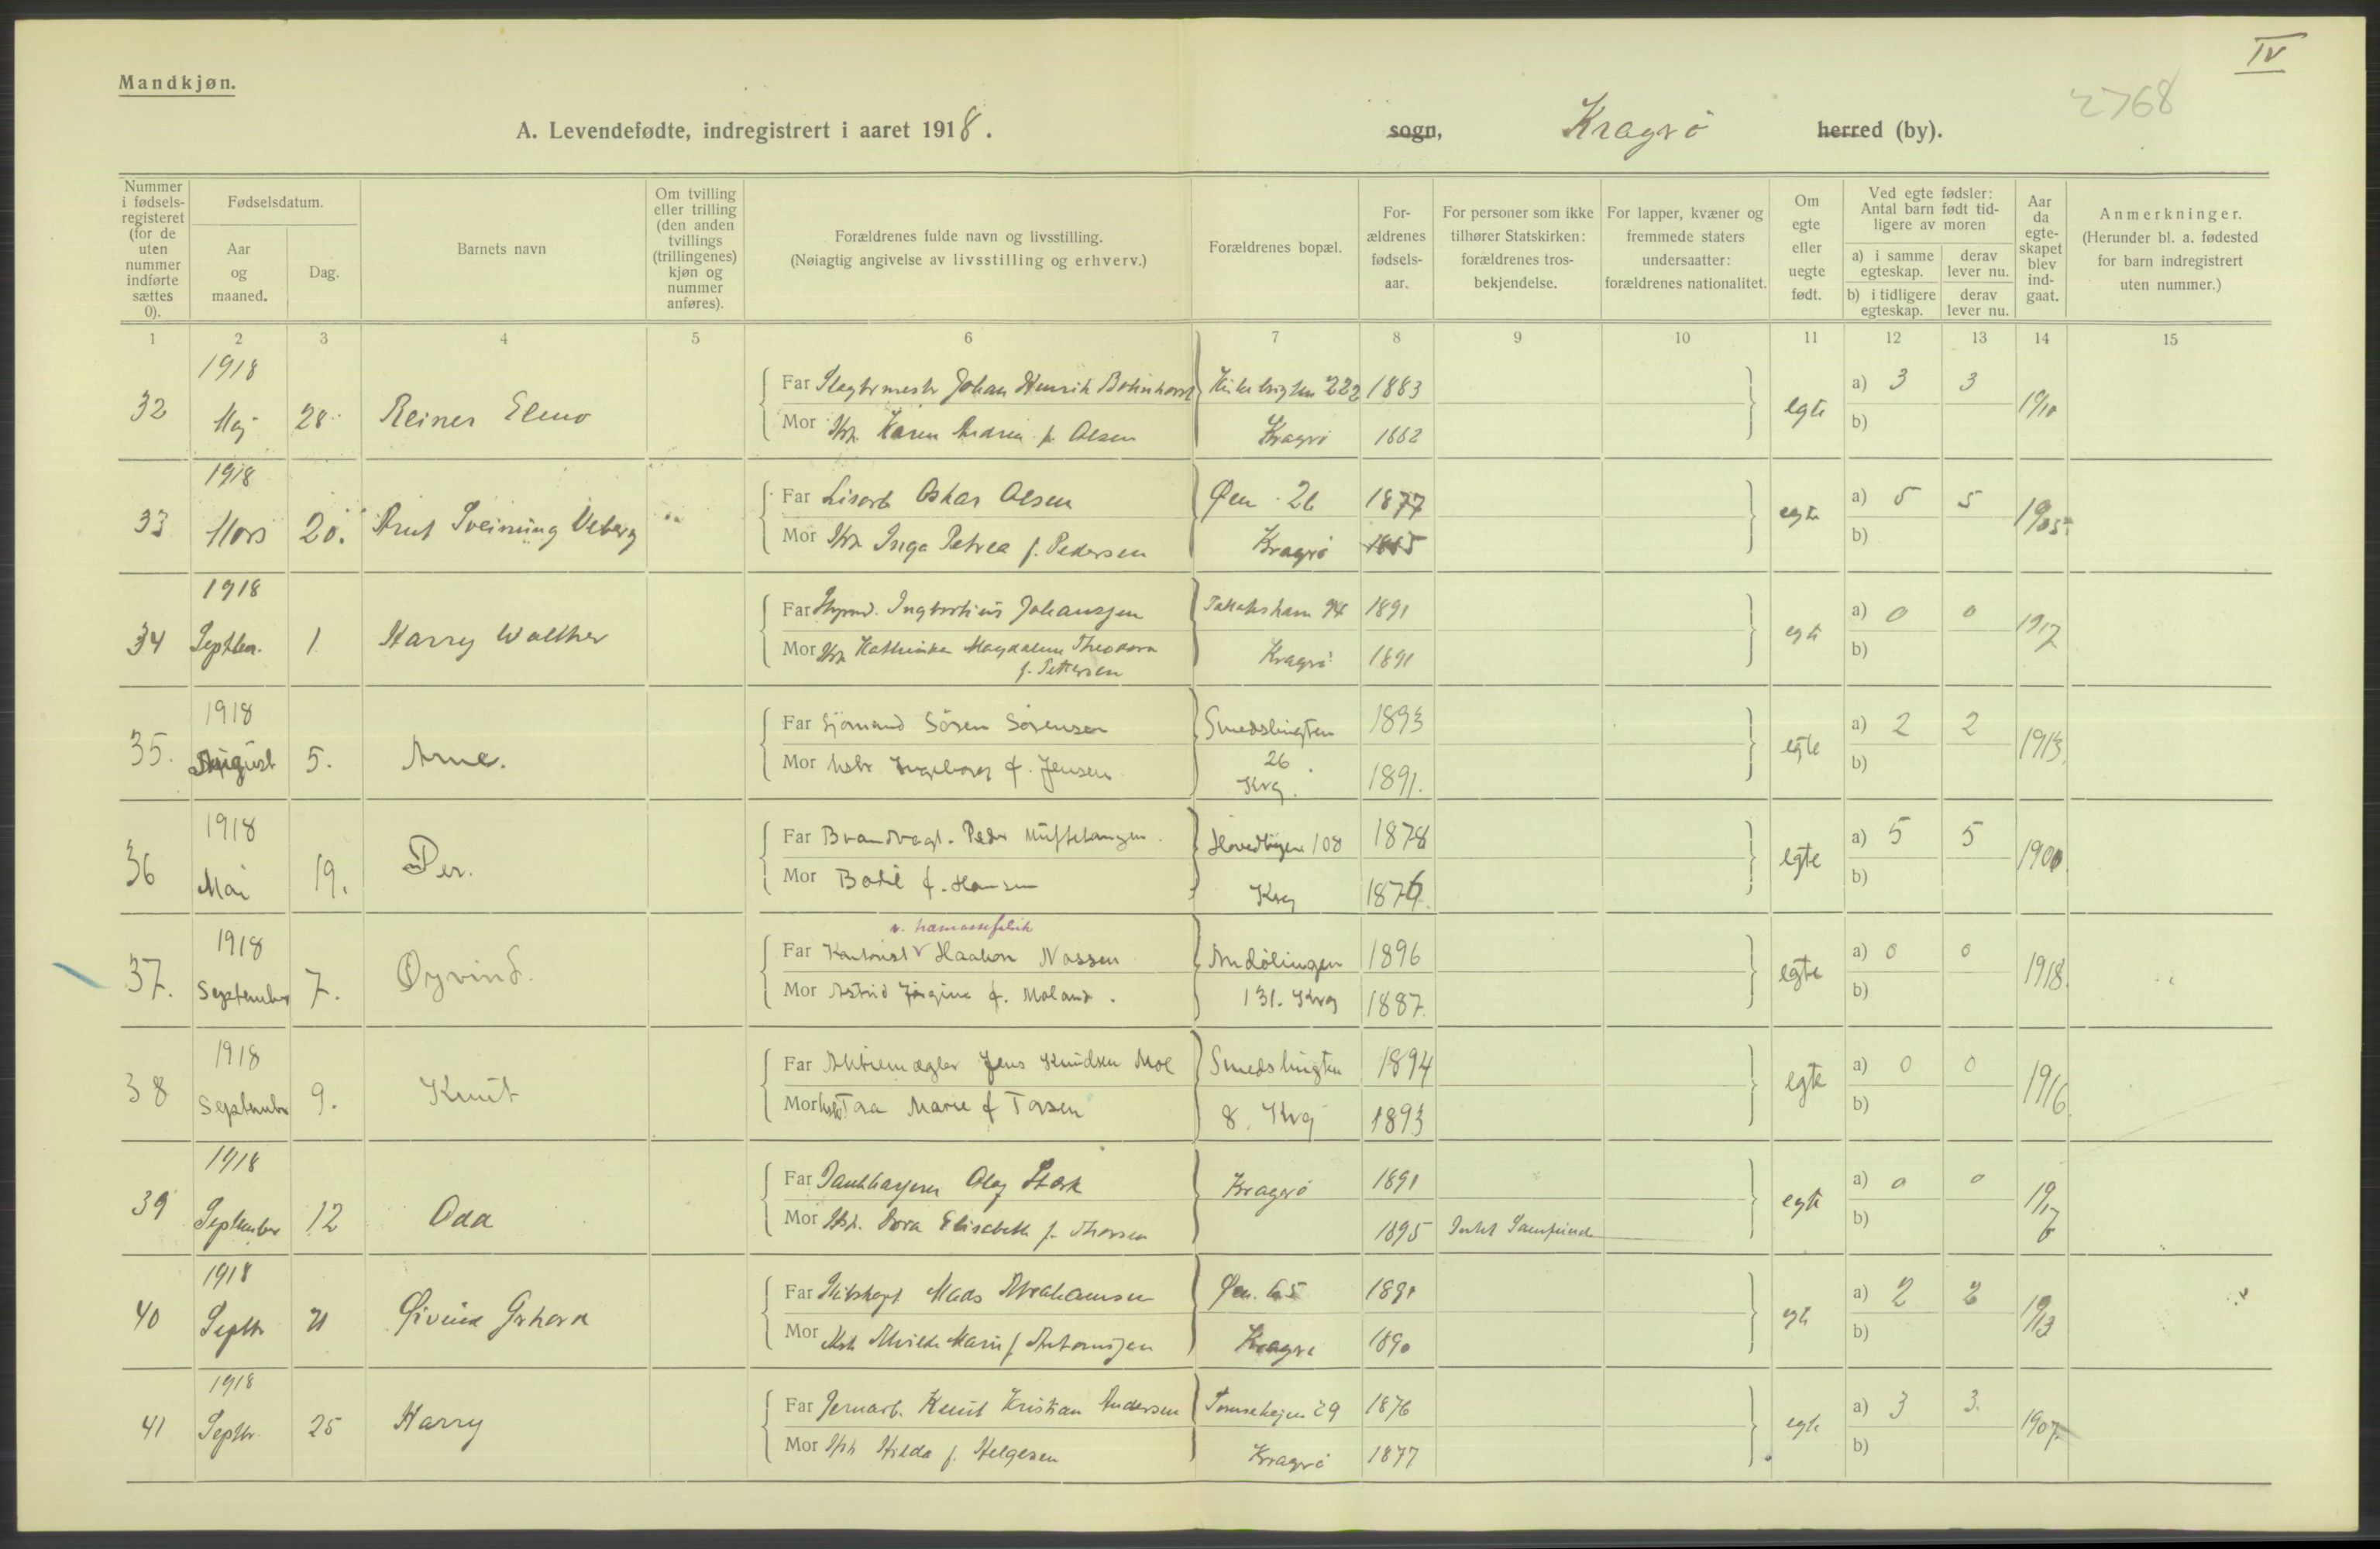 IV
Mandkjøn.
2768
A. Levendefødte, indregistrert i aaret 1918. sogn, Kragerø herred (by).
Nummer i fødsels-registeret (for de uten nummer indførte sættes 0).
Fødselsdatum.
Aar og maaned.
Dag.
Barnets navn
Om tvilling eller trilling (den anden tvillings (trillingenes) kjøn og nummer anføres).
Forældrenes fulde navn og livsstilling.
(Nøiagtig angivelse av livsstilling og erhverv.)
Forældrenes bopæl.
For-ældrenes fødsels-aar.
For personer som ikke tilhører Statskirken: forældrenes tros-bekjendelse.
For lapper, kvæner og fremmede staters undersaatter: forældrenes nationalitet.
Om egte eller uegte født.
Ved egte fødsler: Antal barn født tid-ligere av moren
a) i samme egteskap.
derav lever nu.
b) i tidligere egteskap.
derav lever nu.
Aar da egte-skapet blev ind-gaat.
Anmerkninger.
(Herunder bl. a. fødested for barn indregistrert uten nummer.)
1 2 3 4 5 6 7 8 9 10 11 12 13 14 15
1918
32 Maj 28 Reiner Elmo
Far Slagtermester Johan Henrik 222 1883
Mor Karen Andrea f. Olsen Kragerø 1882
egte a) 3 3 b) 1910
1918
33 Mars 20. Sveinung
Far Oskar Olsen Øen 26 1877
Mor Inga Petrea f. Pedersen Kragerø
egte a) 5 5 b) 1905
1918
34 Septbr. 1 Harry Walther
Far Styrmd. Johansen 94 1891
Mor Kathinka Magdalene Theodora
f. Pettersen Kragerø 1891
egte a) 0 0 b) 1917
1918
35. August 5. Arne.
Far Sjömand Sören Sörensen Smedsbugten 1893
Mor Ingeborg f. Jensen 26 Krg. 1891.
egte a) 2 2 b) 1913.
1918
36 Mai 19. Per.
Far Brandvagt. Peder 108 1878
Mor Bodil f. Hansen Krg 1876.
egte a) 5 5 b) 1900
1918
37. September 7. Øyvind.
Far Kontorist Haakon Nossen 1896
Mor Astrid Jörgine f. Moland. 131. Krg 1887.
egte a) 0 0 b) 1918.
1918
38 September 9. Knut
Far Aktiemægler Jens Knudsen Moe Smedsbugten 1894
Mor Tora Marie f Torsen 8. Krg 1893
egte a) 0 0 b) 1916
1918
39 September 12 Odd
Far Bankkasserer Olaf Stork Kragerø 1891
Mor Dora Elisabeth f. Thorsen 1895
egte a) 0 0 b)
1918
40 Septbr 21 Øivind Gerhard
Far Mads Abrahamsen Øen. 65 1891
Mor Alvilde Marie f Antonisen Kragerø 1890
egte a) 2 2 b) 1913
1918
41 Septbr. 25 Harry
Far Jernarb. Knut Kristian Andersen 29 1876
Mor Hilda f. Helgesen Kragerø 1877
egte a) 3 3 b) 1907